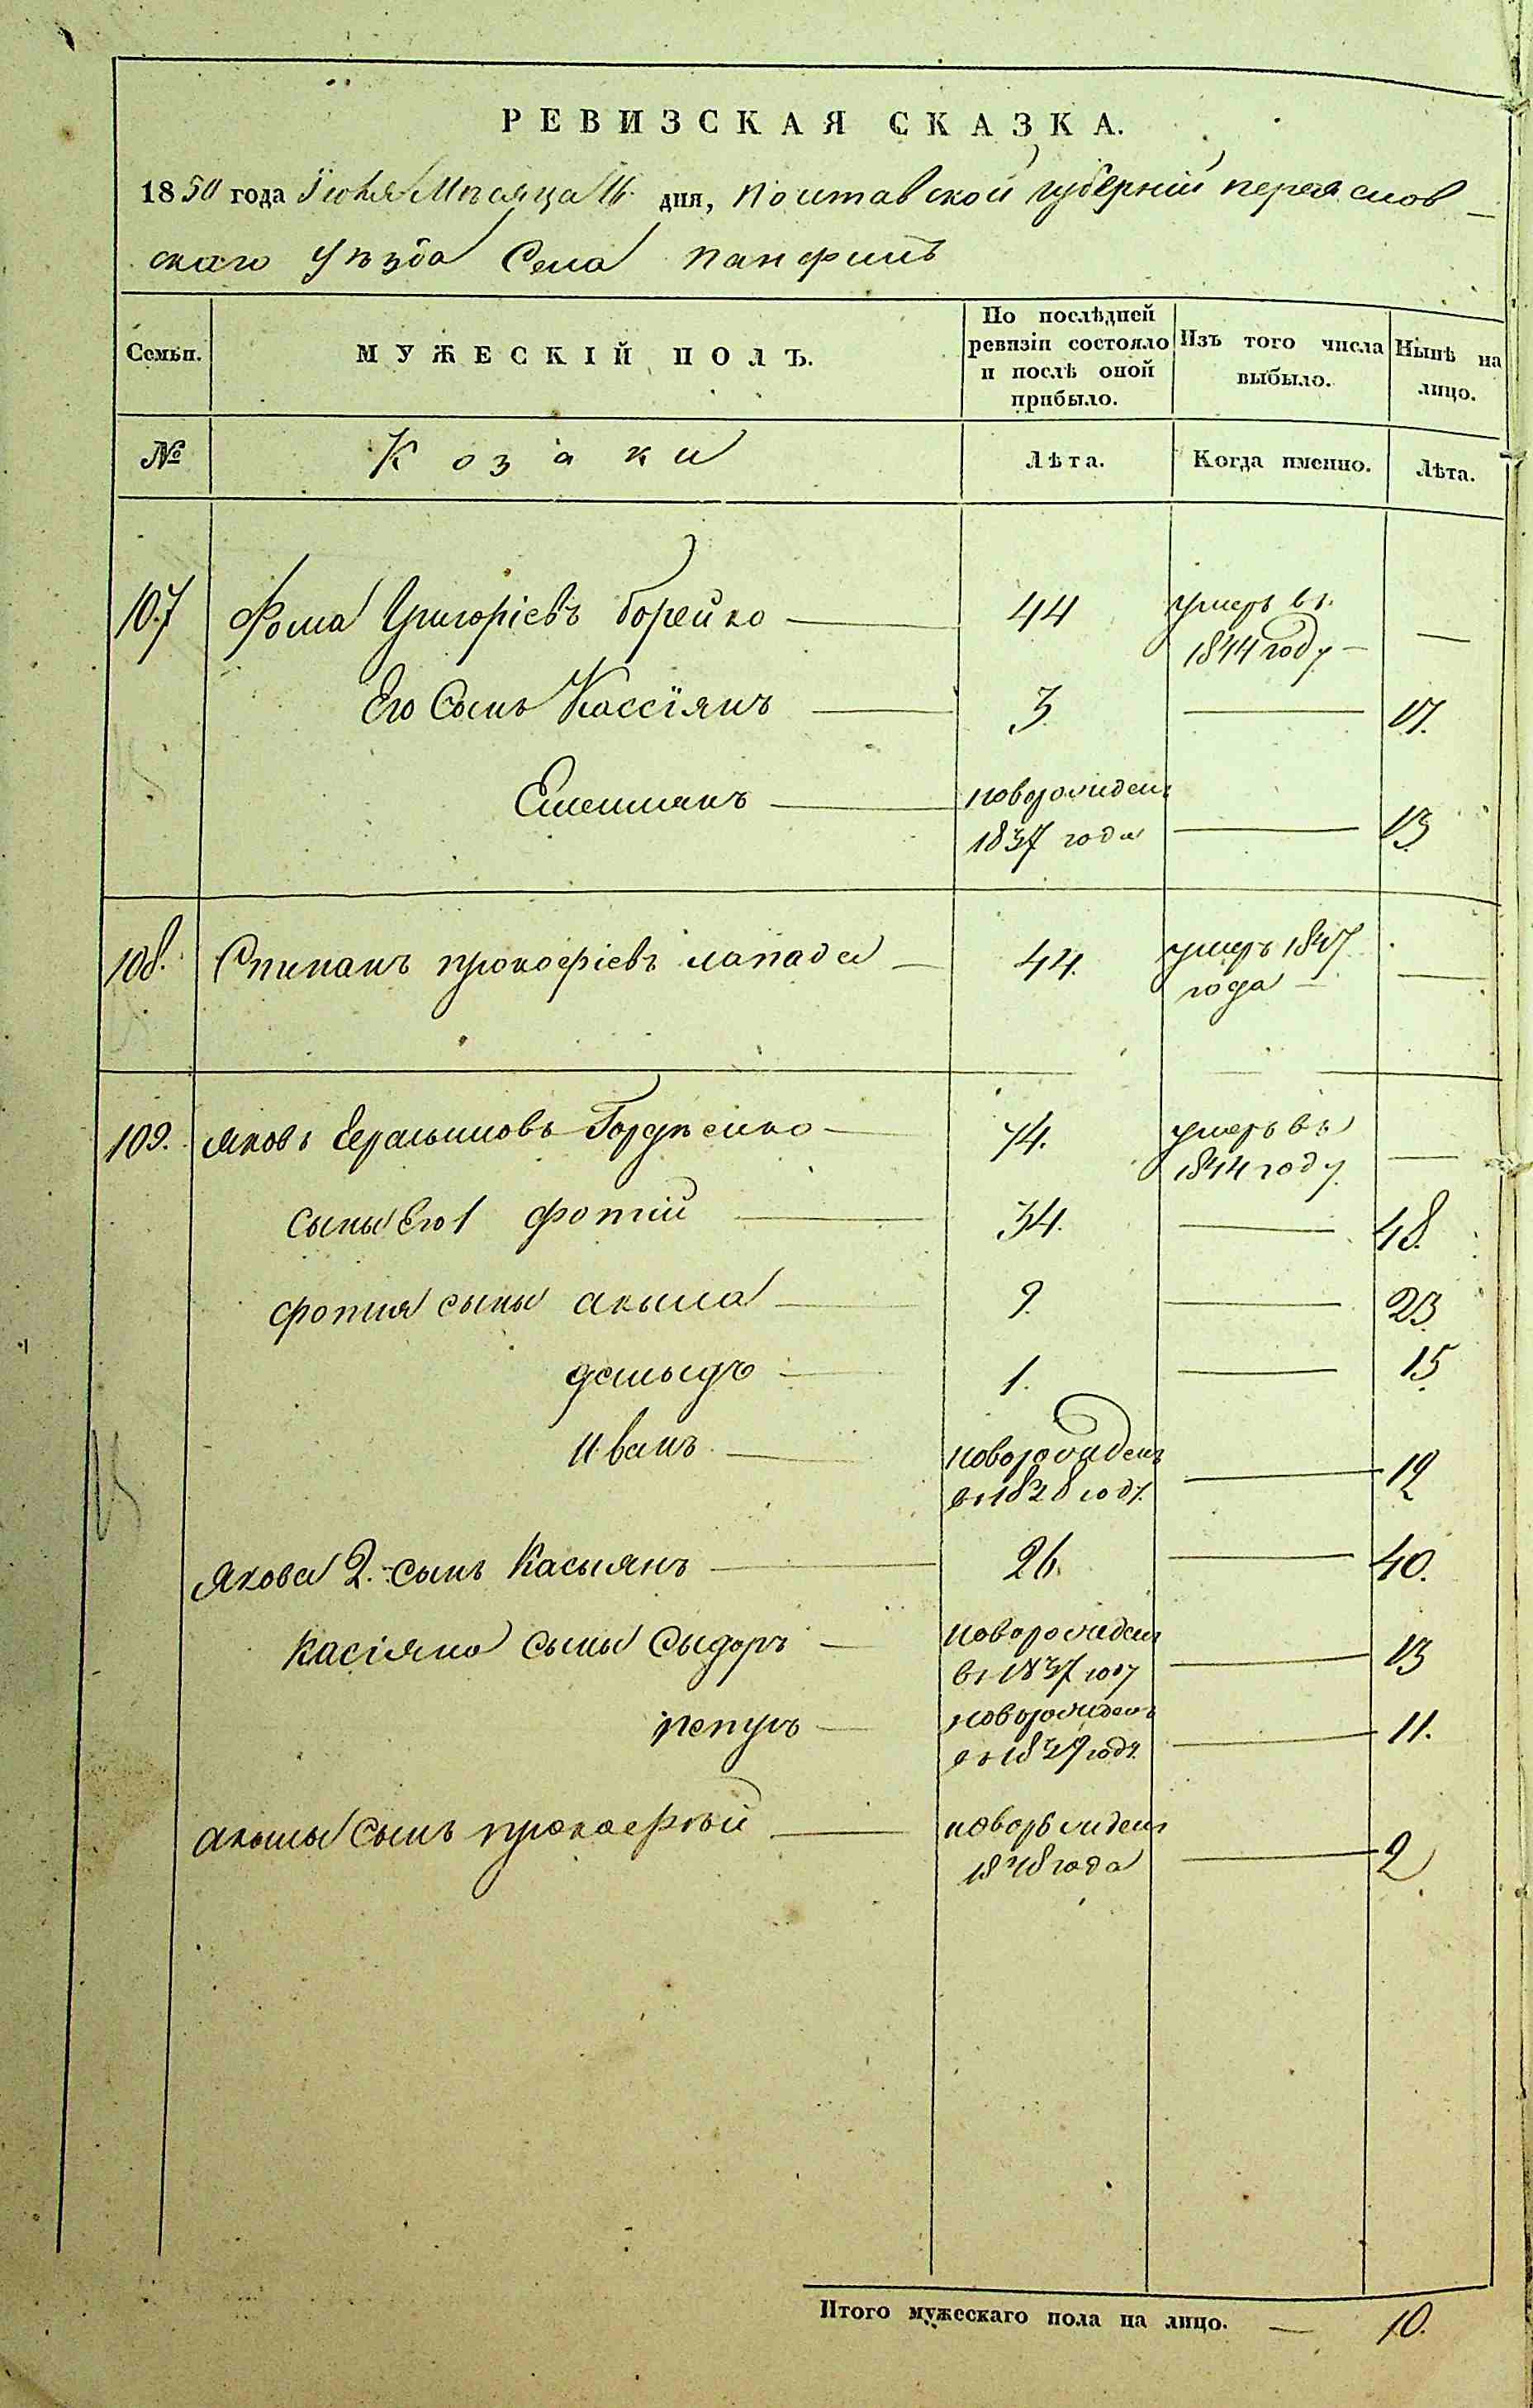 РЕВИЗСКАЯ СКАЗКА.
1850 года Іюля Мѣсяца 16 дня, Полтавской губерніи переяслов-
скаго уѣзда Села панфилъ
Семьи.
МУЖЕСКІЙ ПОЛЪ.
По послѣдней ревизіи состояло и послѣ оной прибыло.
Изъ того числа выбыло.
Нынѣ на лицо.
№ Козаки Лѣта. Когда именно. Лѣта.
107 Фома Григоріевъ борейко — 44 умеръ въ 1844 году — —
Его Сынъ Кассіянъ — 3 — 17.
Емельянъ — новорожден 1837 года — 13
108. Степанъ прокофіевъ лапада — 44. умеръ 1847 года — —
109. яковъ Гордѣенко — 74. умеръ въ 1844 году —
сыны Его 1 фотій — 34. — 48.
фотия сыны акила — 9. — 23
демыдъ — 1. — 15
Иванъ — новорожденъ въ 1838 году — 12
якова 2. сынъ Касыянъ — 26. — 40.
касіяна сыны Сыдоръ — новорожден въ 1837 году — 13
петръ — новорожденъ въ 1839 году — 11.
акилы сынъ прокофій — новорожден 1848 года — 2
Итого мужескаго пола на лицо. — 10.